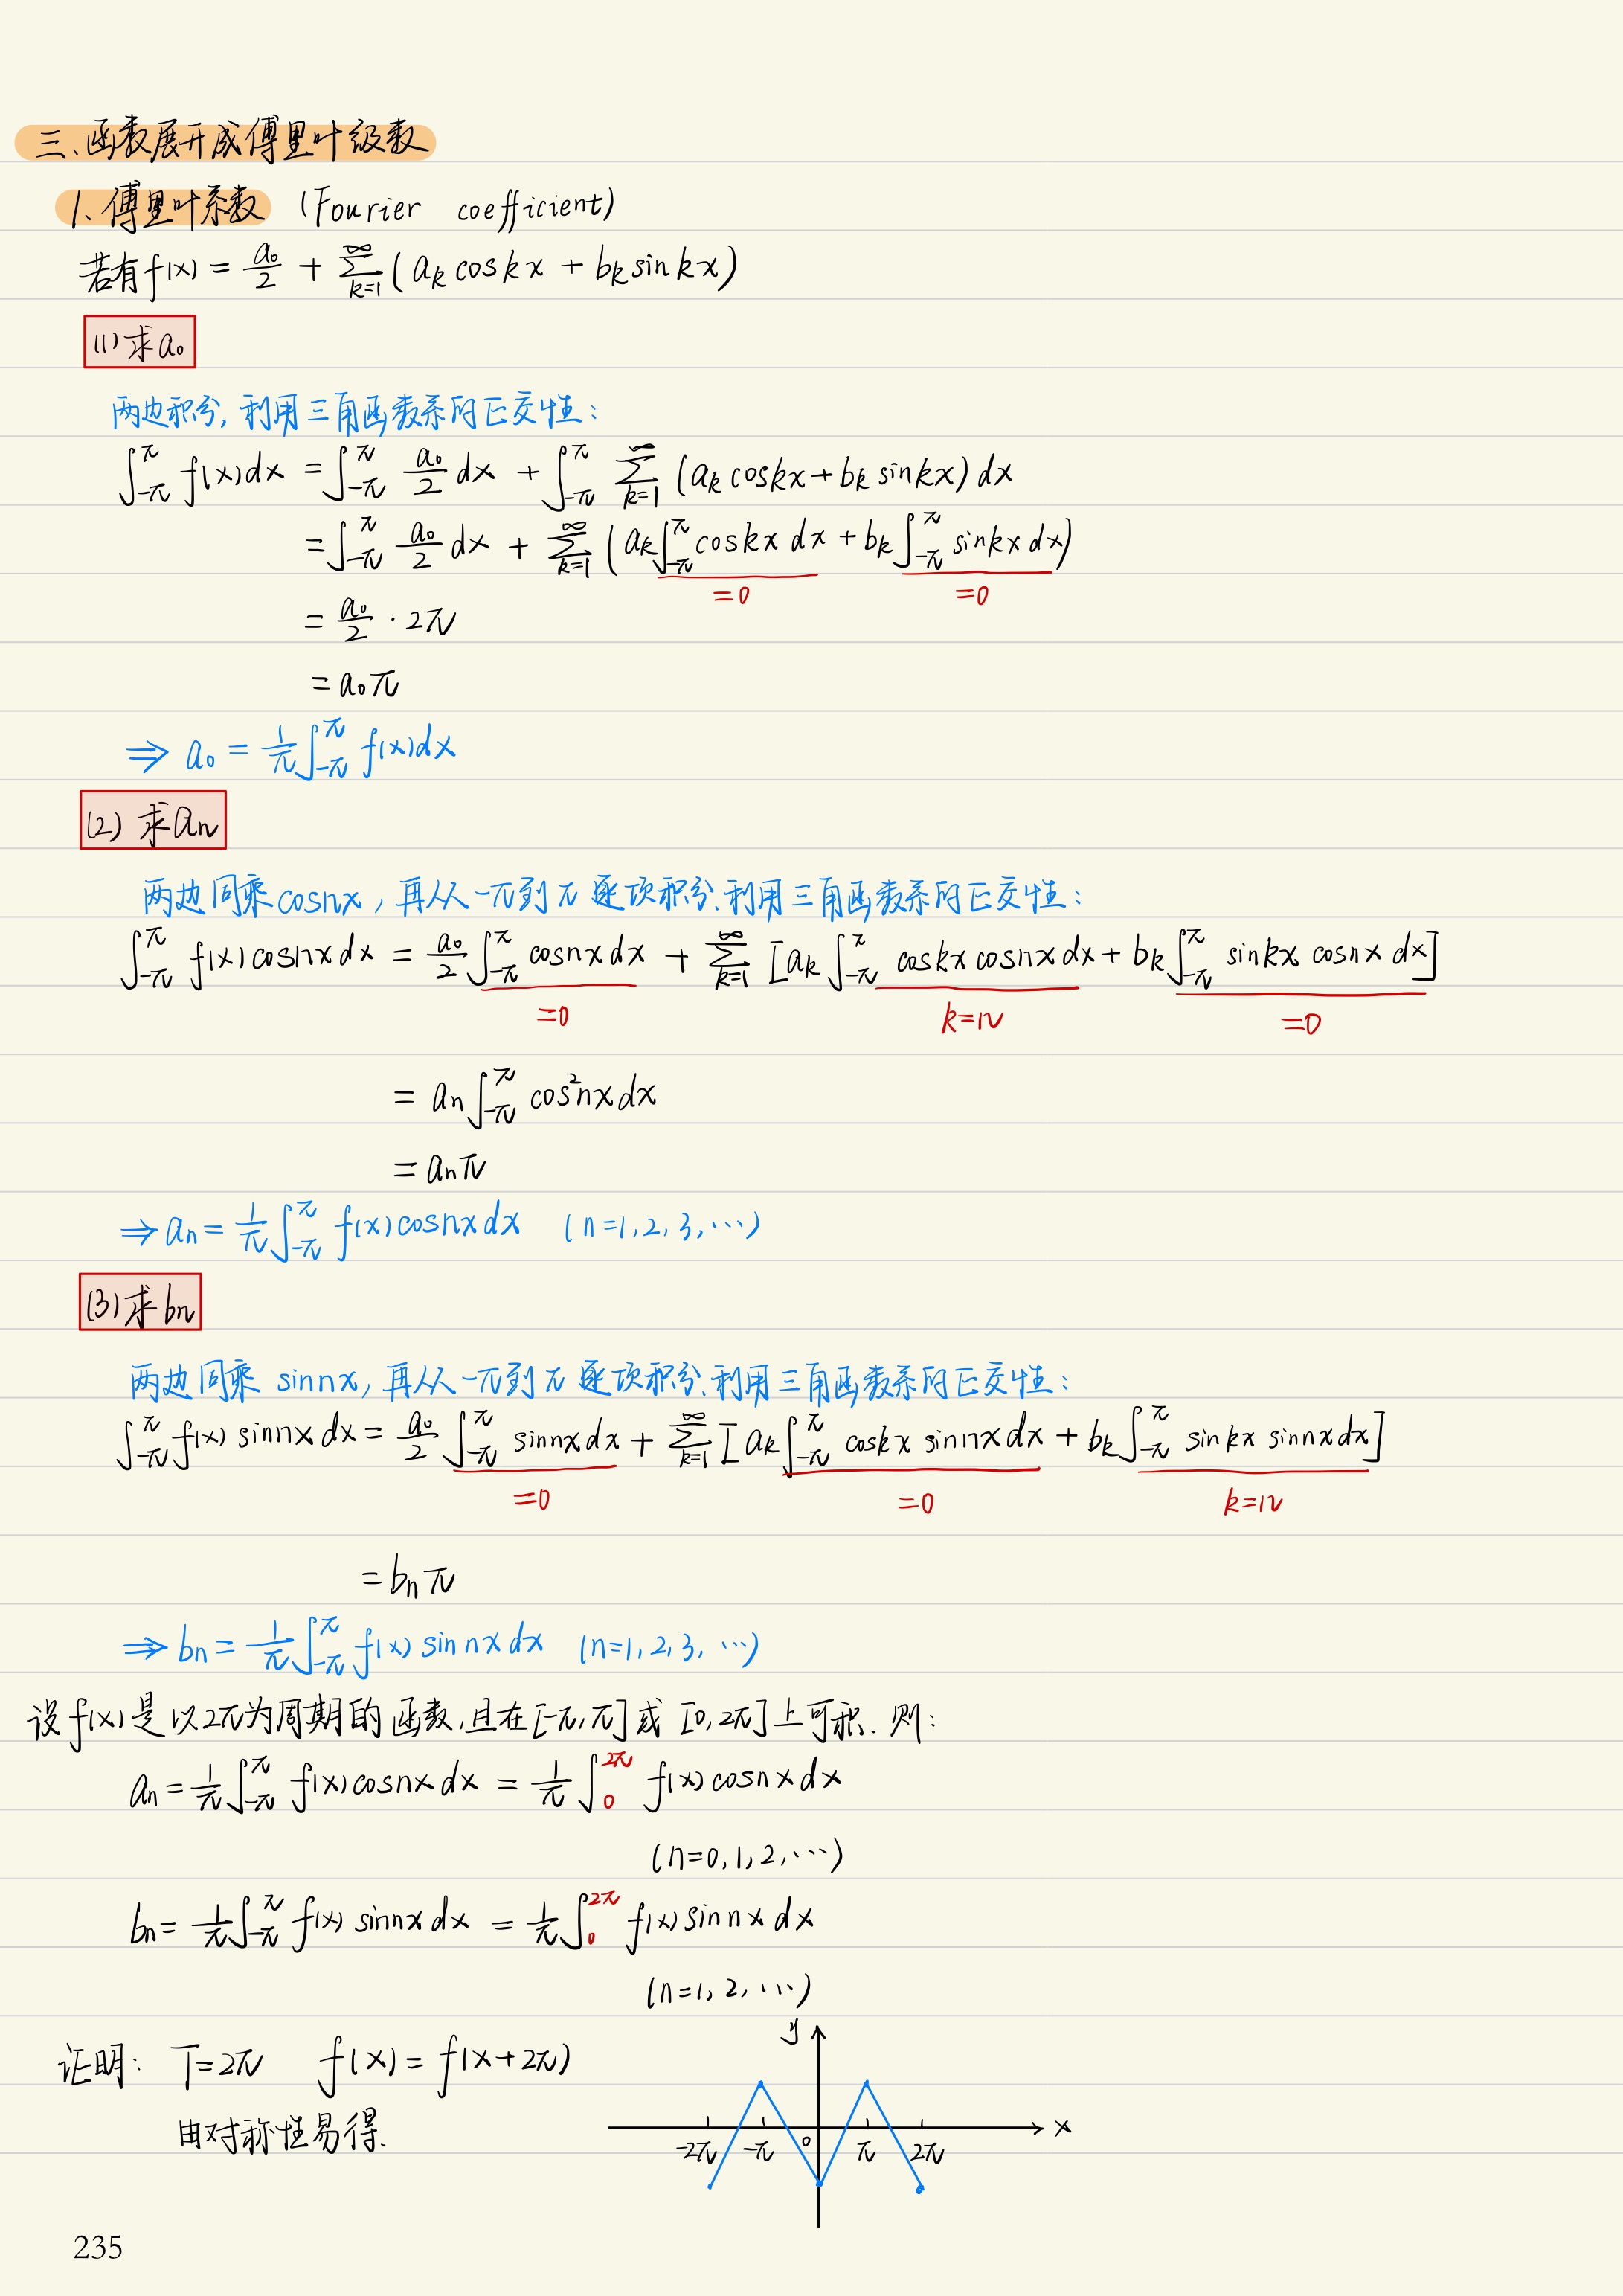 三、函数展开成傅里叶级数
1、傅里叶系数 (Fourier coefficient)
若有f(x) = a₀/2 + ∑_{k=1}^{∞} (aₖ cos kx + bₖ sin kx)
(1) 求a₀
两边积分, 利用三角函数系的正交性:
∫_{-π}^{π} f(x)dx = ∫_{-π}^{π} a₀/2 dx + ∫_{-π}^{π} ∑_{k=1}^{∞} (aₖ cos kx + bₖ sin kx) dx
= ∫_{-π}^{π} a₀/2 dx + ∑_{k=1}^{∞} (aₖ∫_{-π}^{π} cos kx dx + bₖ∫_{-π}^{π} sin kx dx)
=0 =0
= a₀/2 · 2π
= a₀π
⇒ a₀ = 1/π ∫_{-π}^{π} f(x)dx
(2) 求aₙ
两边同乘cosnx, 再从-π到π逐项积分、利用三角函数系的正交性:
∫_{-π}^{π} f(x)cosnx dx = a₀/2 ∫_{-π}^{π} cosnx dx + ∑_{k=1}^{∞} [aₖ∫_{-π}^{π} coskx cosnx dx + bₖ∫_{-π}^{π} sinkx cosnx dx]
=0 k=n =0
= aₙ∫_{-π}^{π} cos²nx dx
= aₙπ
⇒ aₙ = 1/π ∫_{-π}^{π} f(x)cosnx dx (n=1,2,3,⋯)
(3) 求bₙ
两边同乘 sinnx, 再从-π到π逐项积分、利用三角函数系的正交性:
∫_{-π}^{π} f(x) sinnx dx = a₀/2 ∫_{-π}^{π} sinnx dx + ∑_{k=1}^{∞} [aₖ∫_{-π}^{π} coskx sinnx dx + bₖ∫_{-π}^{π} sinkx sinnx dx]
=0 =0 k=n
= bₙπ
⇒ bₙ = 1/π ∫_{-π}^{π} f(x) sin nx dx (n=1,2,3,⋯)
设f(x)是以2π为周期的函数,且在[-π,π]或[0,2π]上可积. 则:
aₙ = 1/π ∫_{-π}^{π} f(x)cosnx dx = 1/π ∫_{0}^{2π} f(x)cosnx dx
(n=0,1,2,⋯)
bₙ = 1/π ∫_{-π}^{π} f(x) sinnx dx = 1/π ∫_{0}^{2π} f(x) sin nx dx
(n=1,2,⋯)
y
证明: T=2π f(x)=f(x+2π)
由对称性易得.
x
-2π -π 0 π 2π
235